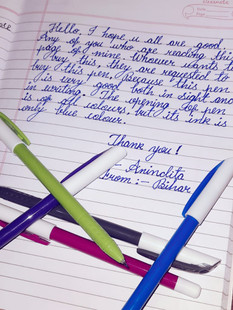 Hello, I hope u all are good.
Any of you who are reading this
page of mine, whoever wants to
buy this, they are requested to
buy this pen, Because this pen
is very good both in sight and
in writing. The opening of pen
is of all colours, but its ink is
only blue colour.
Thank you!
:- Anindita
From :- Bihar